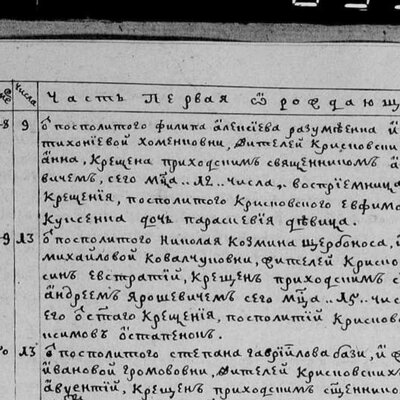 числа
Часть Первая ѿ рождающи
8 9 Ѿ посполитого филипа алеѯіева разумѣенка и
тихоніевой хоменковни, жителей крисковски
анна, крещена приходскимъ священникомъ а
вичемъ, сего мца .. Л҃І .. числа, воспріемница
крещенія, посполитого крисковского евфим
дочь параскевія дѣвица.
9 Л҃З Ѿ посполитого Николая козмина щербоноса, и
михайловой ковалчуковни, жителей криско
синъ евстратій, крещенъ приходскимъ с
андреемъ Ярошевичемъ сего мца .. Л҃Е .. чис
его ст҃аго крещенія, посполитій криско
исимовъ остапенокъ.
Л҃З Ѿ посполитого стефана гавріилова бази, и
ивановой громововни, жителей крисковских
авуентій, крещенъ приходскимъ сщ҃енник